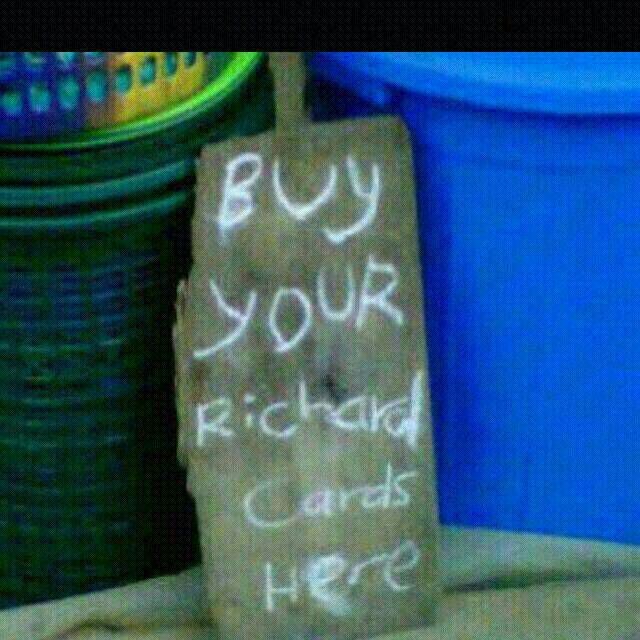 BUY
YOUR
Richard
Cards
Here